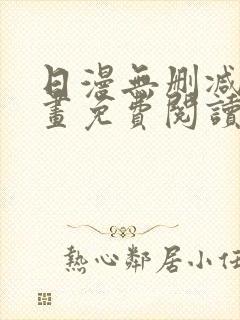 日漫無刪減
畫免費閱讀
熱心鄰居小伍